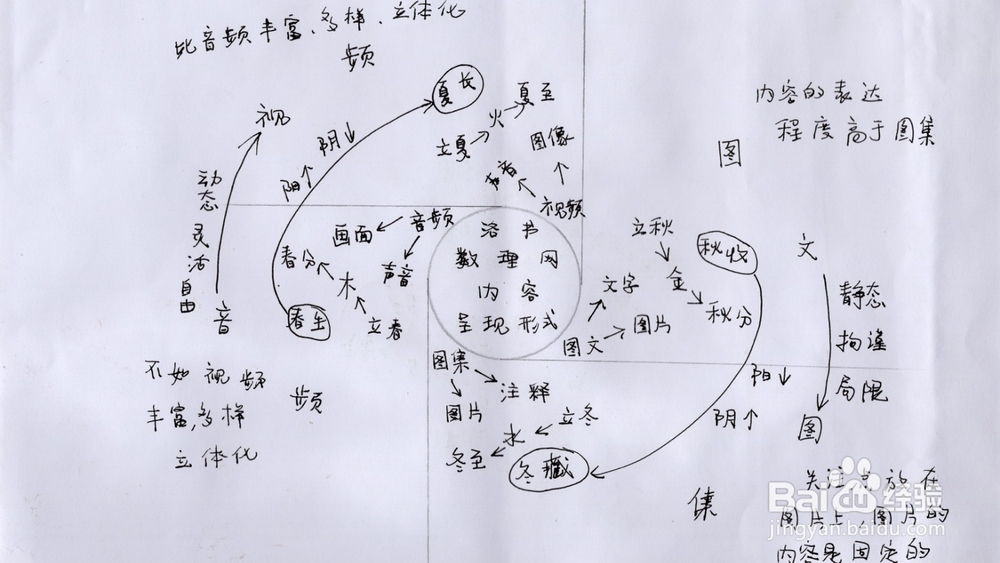 比音频丰富、多样、立体化
频
视
动态
灵活
自由
音
阳↑
阴↓
夏长
立夏
火
夏至
图像
声音
视频
内容的表达
程度高于图集
图
画面
音频
声音
春分
木
立春
春生
洛书
数理网
内容
呈现形式
立秋
金
秋分
秋收
文字
图文
图片
文
静态
拘谨
局限
图
阳↓
阴↑
不如视频
丰富,多样
立体化
频
图集
图片
注释
水
立冬
冬至
冬藏
集
关注点放在
图片上,图片的
内容是固定的
Baidu经验
jingyan.baidu.com